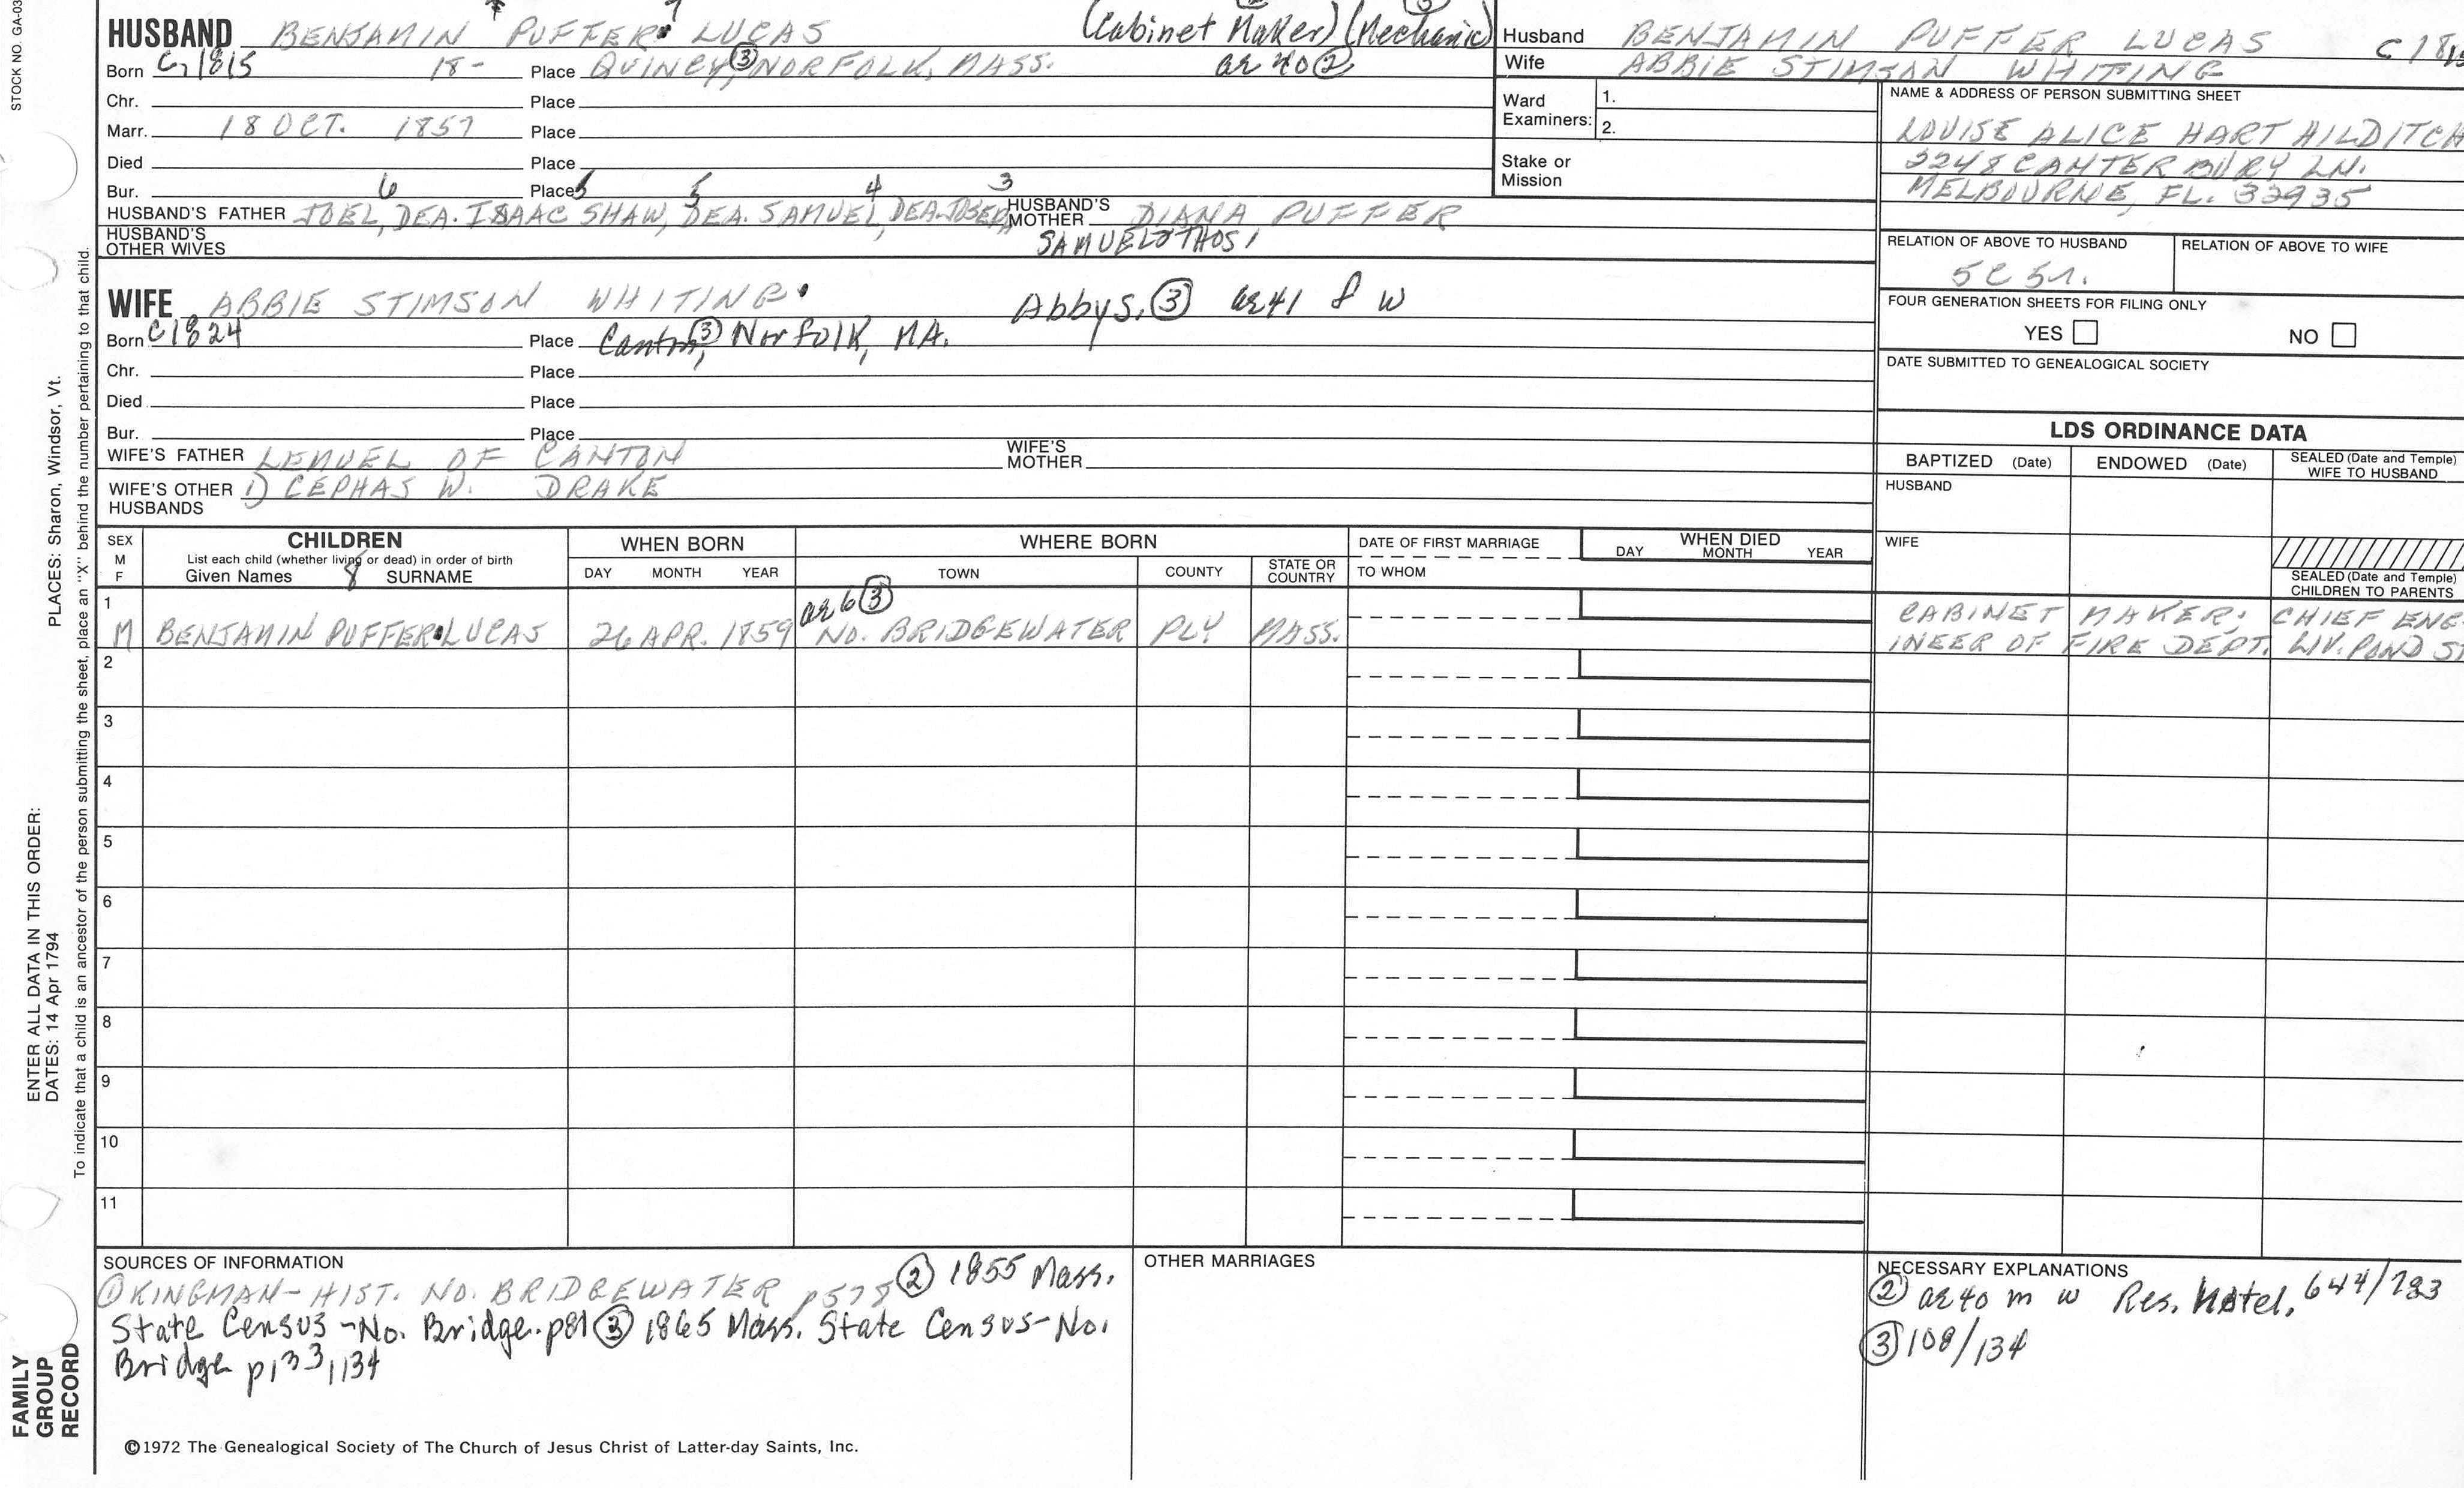 STOCK NO. GA-03
HUSBAND BENJAMIN PUFFER LUCAS (Cabinet Maker) (Mechanic)
Born C1815 18- Place QUINCY, ③ NORFOLK, MASS. ae 40 ②
Chr. Place
Marr. 18 OCT. 1857 Place
Died Place
Bur. Place
6 5 4 3
HUSBAND'S FATHER JOEL, DEA. ISAAC SHAW, DEA. SAMUEL, DEA. JOSEPH, HUSBAND'S MOTHER DIANA PUFFER
HUSBAND'S OTHER WIVES SAMUEL 2 THOS 1
WIFE ABBIE STIMSON WHITING Abby S. ③ ae 41 f w
Born C1824 Place Canton, ③ Norfolk, MA.
Chr. Place
Died Place
Bur. Place
WIFE'S FATHER LEMUEL OF CANTON WIFE'S MOTHER
WIFE'S OTHER HUSBANDS 1) CEPHAS W. DRAKE
Husband BENJAMIN PUFFER LUCAS C1815
Wife ABBIE STIMSON WHITING
Ward Examiners: 1.
2.
Stake or Mission
NAME & ADDRESS OF PERSON SUBMITTING SHEET
LOUISE ALICE HART HILDITCH
2248 CANTERBURY LN.
MELBOURNE, FL. 32935
RELATION OF ABOVE TO HUSBAND RELATION OF ABOVE TO WIFE
5C 5r.
FOUR GENERATION SHEETS FOR FILING ONLY
YES NO
DATE SUBMITTED TO GENEALOGICAL SOCIETY
LDS ORDINANCE DATA
BAPTIZED (Date) ENDOWED (Date) SEALED (Date and Temple) WIFE TO HUSBAND
HUSBAND
WIFE
SEALED (Date and Temple) CHILDREN TO PARENTS
SEX M F
CHILDREN
List each child (whether living or dead) in order of birth
Given Names 8 SURNAME
WHEN BORN
DAY MONTH YEAR
WHERE BORN
TOWN COUNTY STATE OR COUNTRY
DATE OF FIRST MARRIAGE
TO WHOM
WHEN DIED
DAY MONTH YEAR
1 ae 6 ③
M BENJAMIN PUFFER LUCAS 26 APR. 1859 NO. BRIDGEWATER PLY MASS.
CABINET MAKER; CHIEF ENG-
INEER OF FIRE DEPT. LIV. POND ST
2
3
4
5
6
7
8
9
10
11
SOURCES OF INFORMATION
① KINGMAN - HIST. NO. BRIDGEWATER p578 ② 1855 Mass.
State Census - No. Bridge. p81 ③ 1865 Mass. State Census - No.
Bridge p133,134
OTHER MARRIAGES
NECESSARY EXPLANATIONS
② ae 40 m w Res. Hotel, 644/783
③ 108/134
©1972 The Genealogical Society of The Church of Jesus Christ of Latter-day Saints, Inc.
FAMILY GROUP RECORD
ENTER ALL DATA IN THIS ORDER:
DATES: 14 Apr 1794
PLACES: Sharon, Windsor, Vt.
To indicate that a child is an ancestor of the person submitting the sheet, place an "X" behind the number pertaining to that child.